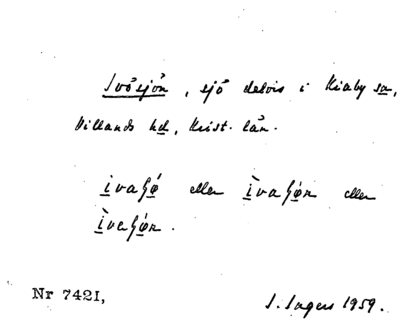 Ivösjön, sjö delvis i Kiaby sn,
Villands hd, Krist. län.
ìvaʃø̀ eller ìvaʃø̀n eller
ìveʃø̀n.
Nr 7421, S. Ingers 1959.